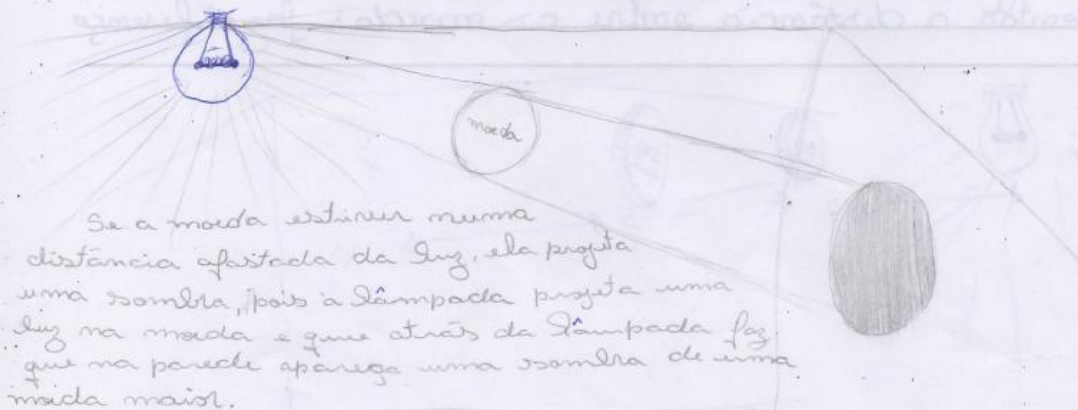 moeda
Se a moeda estiver numa
distância afastada da luz, ela projeta
uma sombra, pois a lâmpada projeta uma
luz na moeda e que atrás da lâmpada faz
que na parede apareça uma sombra de uma
moeda maior.